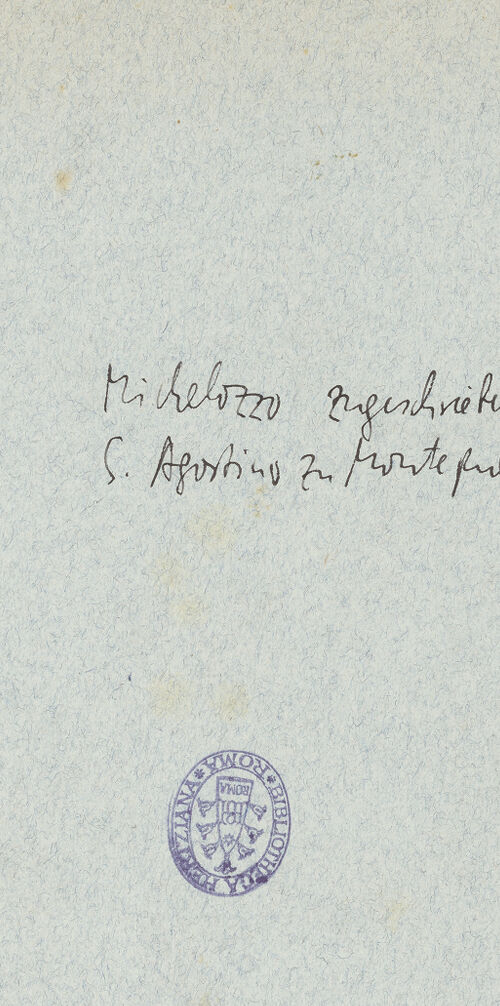 Michelozzo zugeschriebe
S. Agostino zu Montepul
BIBLIOTHECA HERTZIANA * ROMA *
ROMA